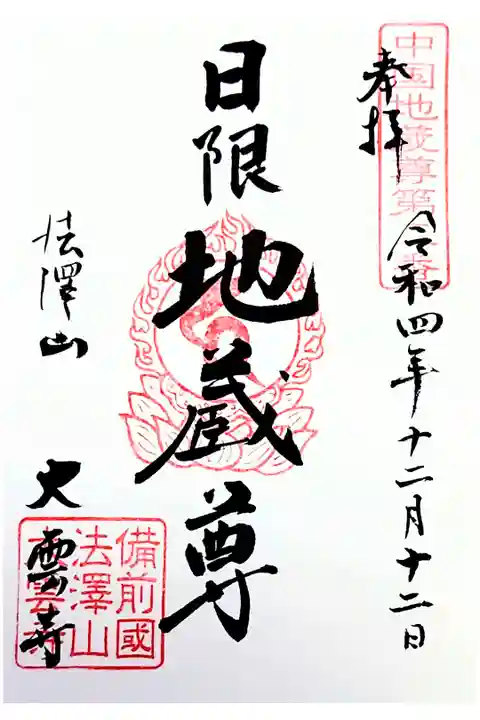 奉拝
令和四年十二月十二日
中国地蔵尊第
日限地蔵尊
法澤山
大雲寺
備前國
法澤山
大雲寺